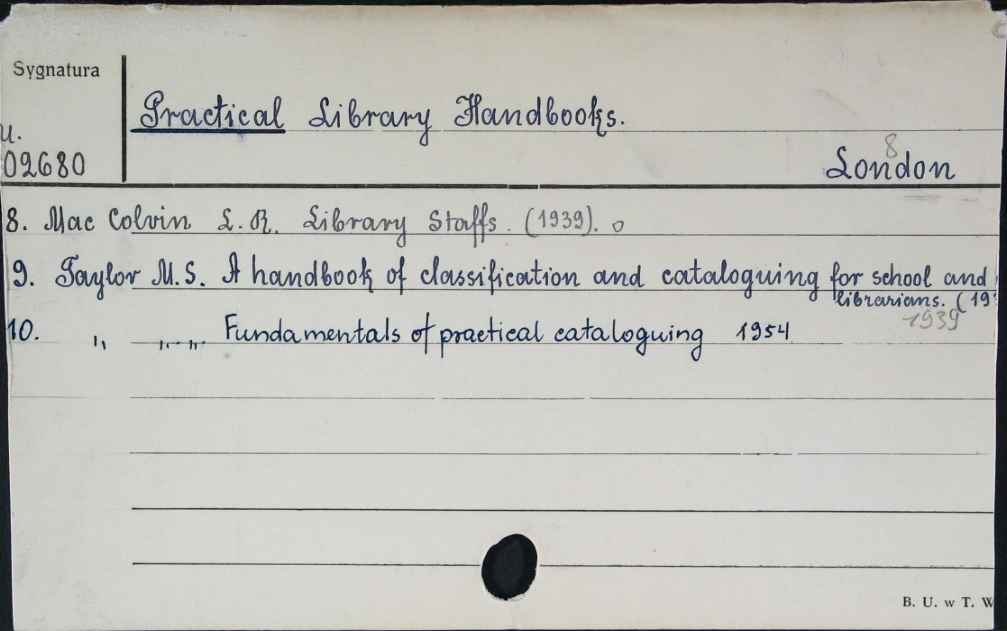 Sygnatura
Practical Library Handbooks.
u.
02680
8
London
8. Mac Colvin L. R. Library Staffs. (1939). o
9. Taylor M.S. A handbook of classification and cataloguing for school and
librarians. (19
1939
10. " " " Fundamentals of practical cataloguing 1954
B. U. w T. W